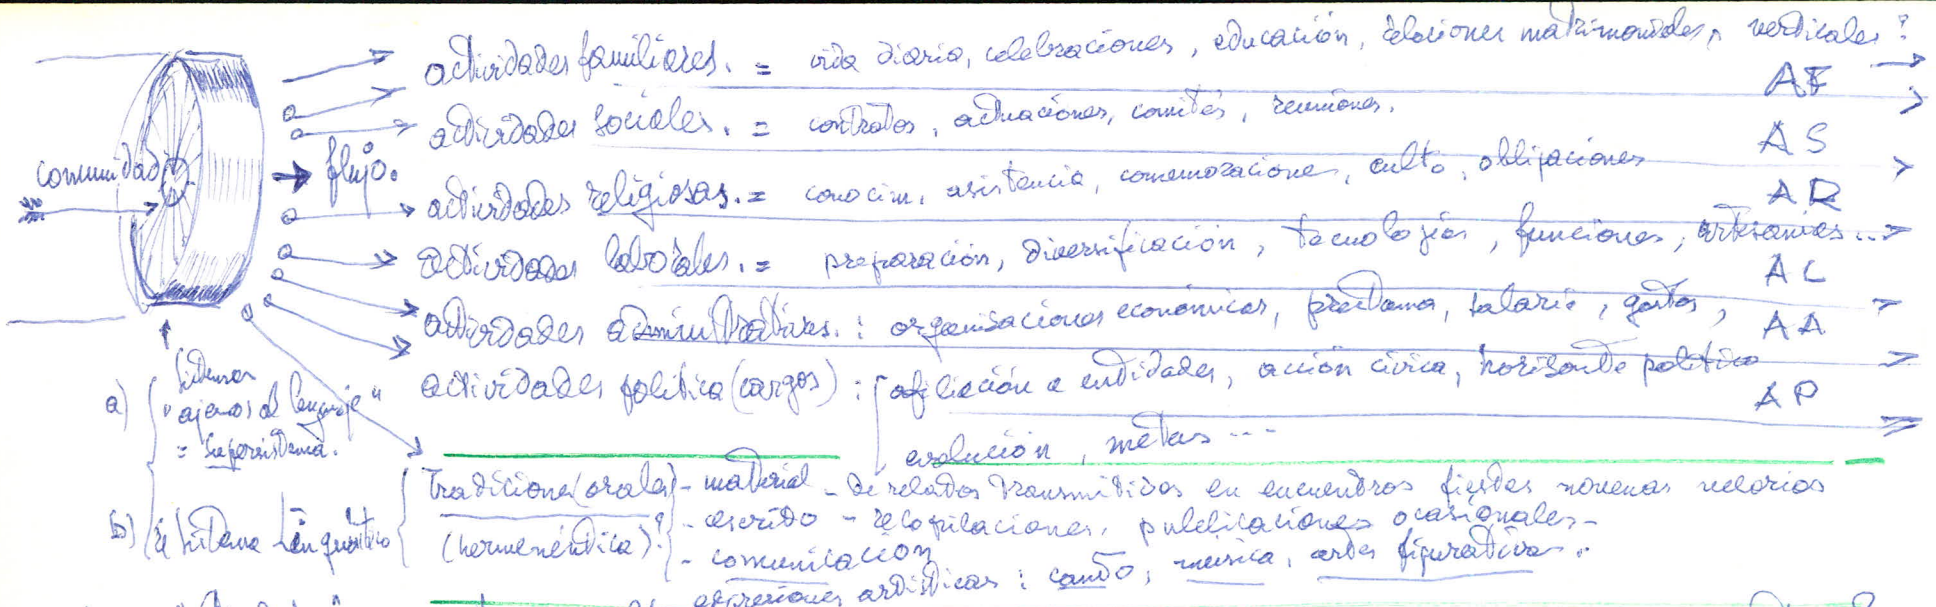 actividades familiares. = vida diaria, celebraciones, educación, relaciones matrimoniales, verticales?
AF
actividades sociales. = contratos, actuaciones, comités, reuniones.
AS
comunidad
flujo.
actividades religiosas. = conocim, asistencia, conmemoraciones, culto, obligaciones
AR
actividades laborales. = preparación, diversificación, tecnologías, funciones, artesanías...
AL
actividades administrativas. : organisaciones económicas, préstamo, salario, gastos,
AA
actividades política (cargos) : afiliación a entidades, acción cívica, horisonte político
AP
evolución, metas ...
a) sistemas
"ajenos al lenguaje"
= supersistema.
Tradiciones (orales) - material - de relatos transmitidos en encuentros fiestas novenas velorios
b) Sistema Lingüístico
(hermenéutica)? - escrito - recopilaciones, publicaciones ocasionales -
- comunicación
expresiones artísticas : canto, música, artes figurativas.